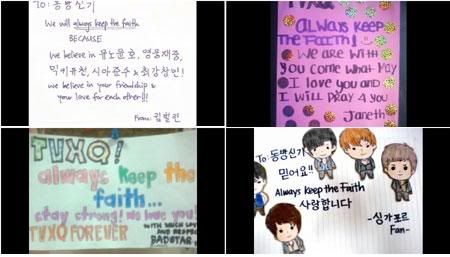 To: 동방신기
We will always keep the faith
BECAUSE
We believe in 유노윤호, 영웅재중,
믹키유천, 시아준수 & 최강창민!
We believe in your friendship &
your love for each other!!!
From:
TVXQ
ALWAYS KEEP
THE FAITH!
WE ARE WITH
YOU COME WHAT MAY
I LOVE YOU AND
I WILL PRAY 4 YOU
JANETH
TVXQ!
always keep the
faith...
stay strong! we love you!
TVXQ FOREVER
WITH MUCH LOVE
AND RESPECT
BADSTAR
To: 동방신기
믿어요!!
Always Keep the Faith
사랑합니다
-싱가포르
Fan-